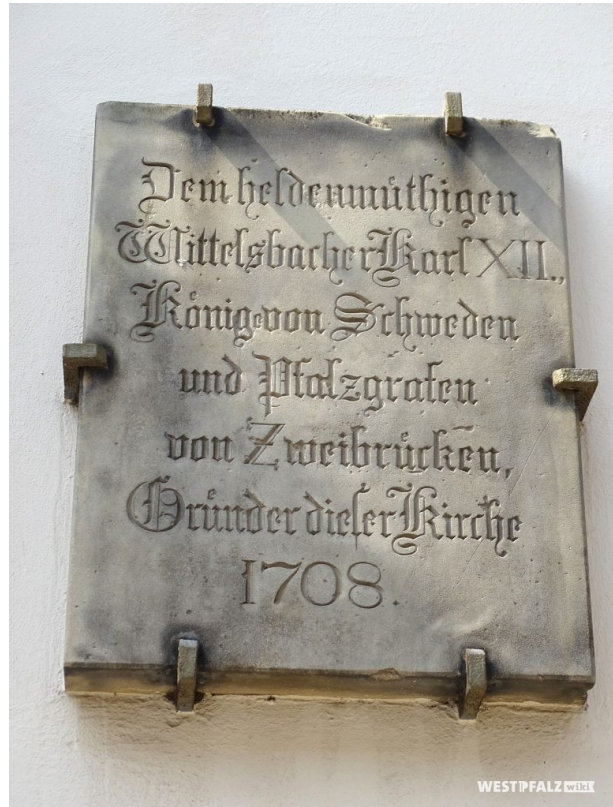 Dem heldenmüthigen
Wittelsbacher Karl XII.,
König von Schweden
und Pfalzgrafen
von Zweibrücken,
Gründer dieser Kirche
1708.
WESTPFALZ wiki